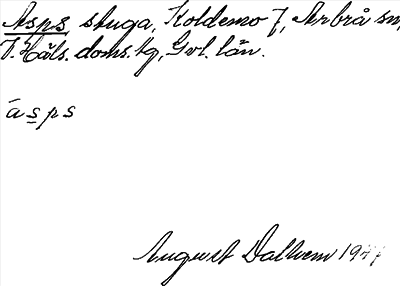 Asps stuga, Koldemo 7, Arbrå sn,
V. Häls. doms. tg, Gvl. län.
ásps
August Dalhem